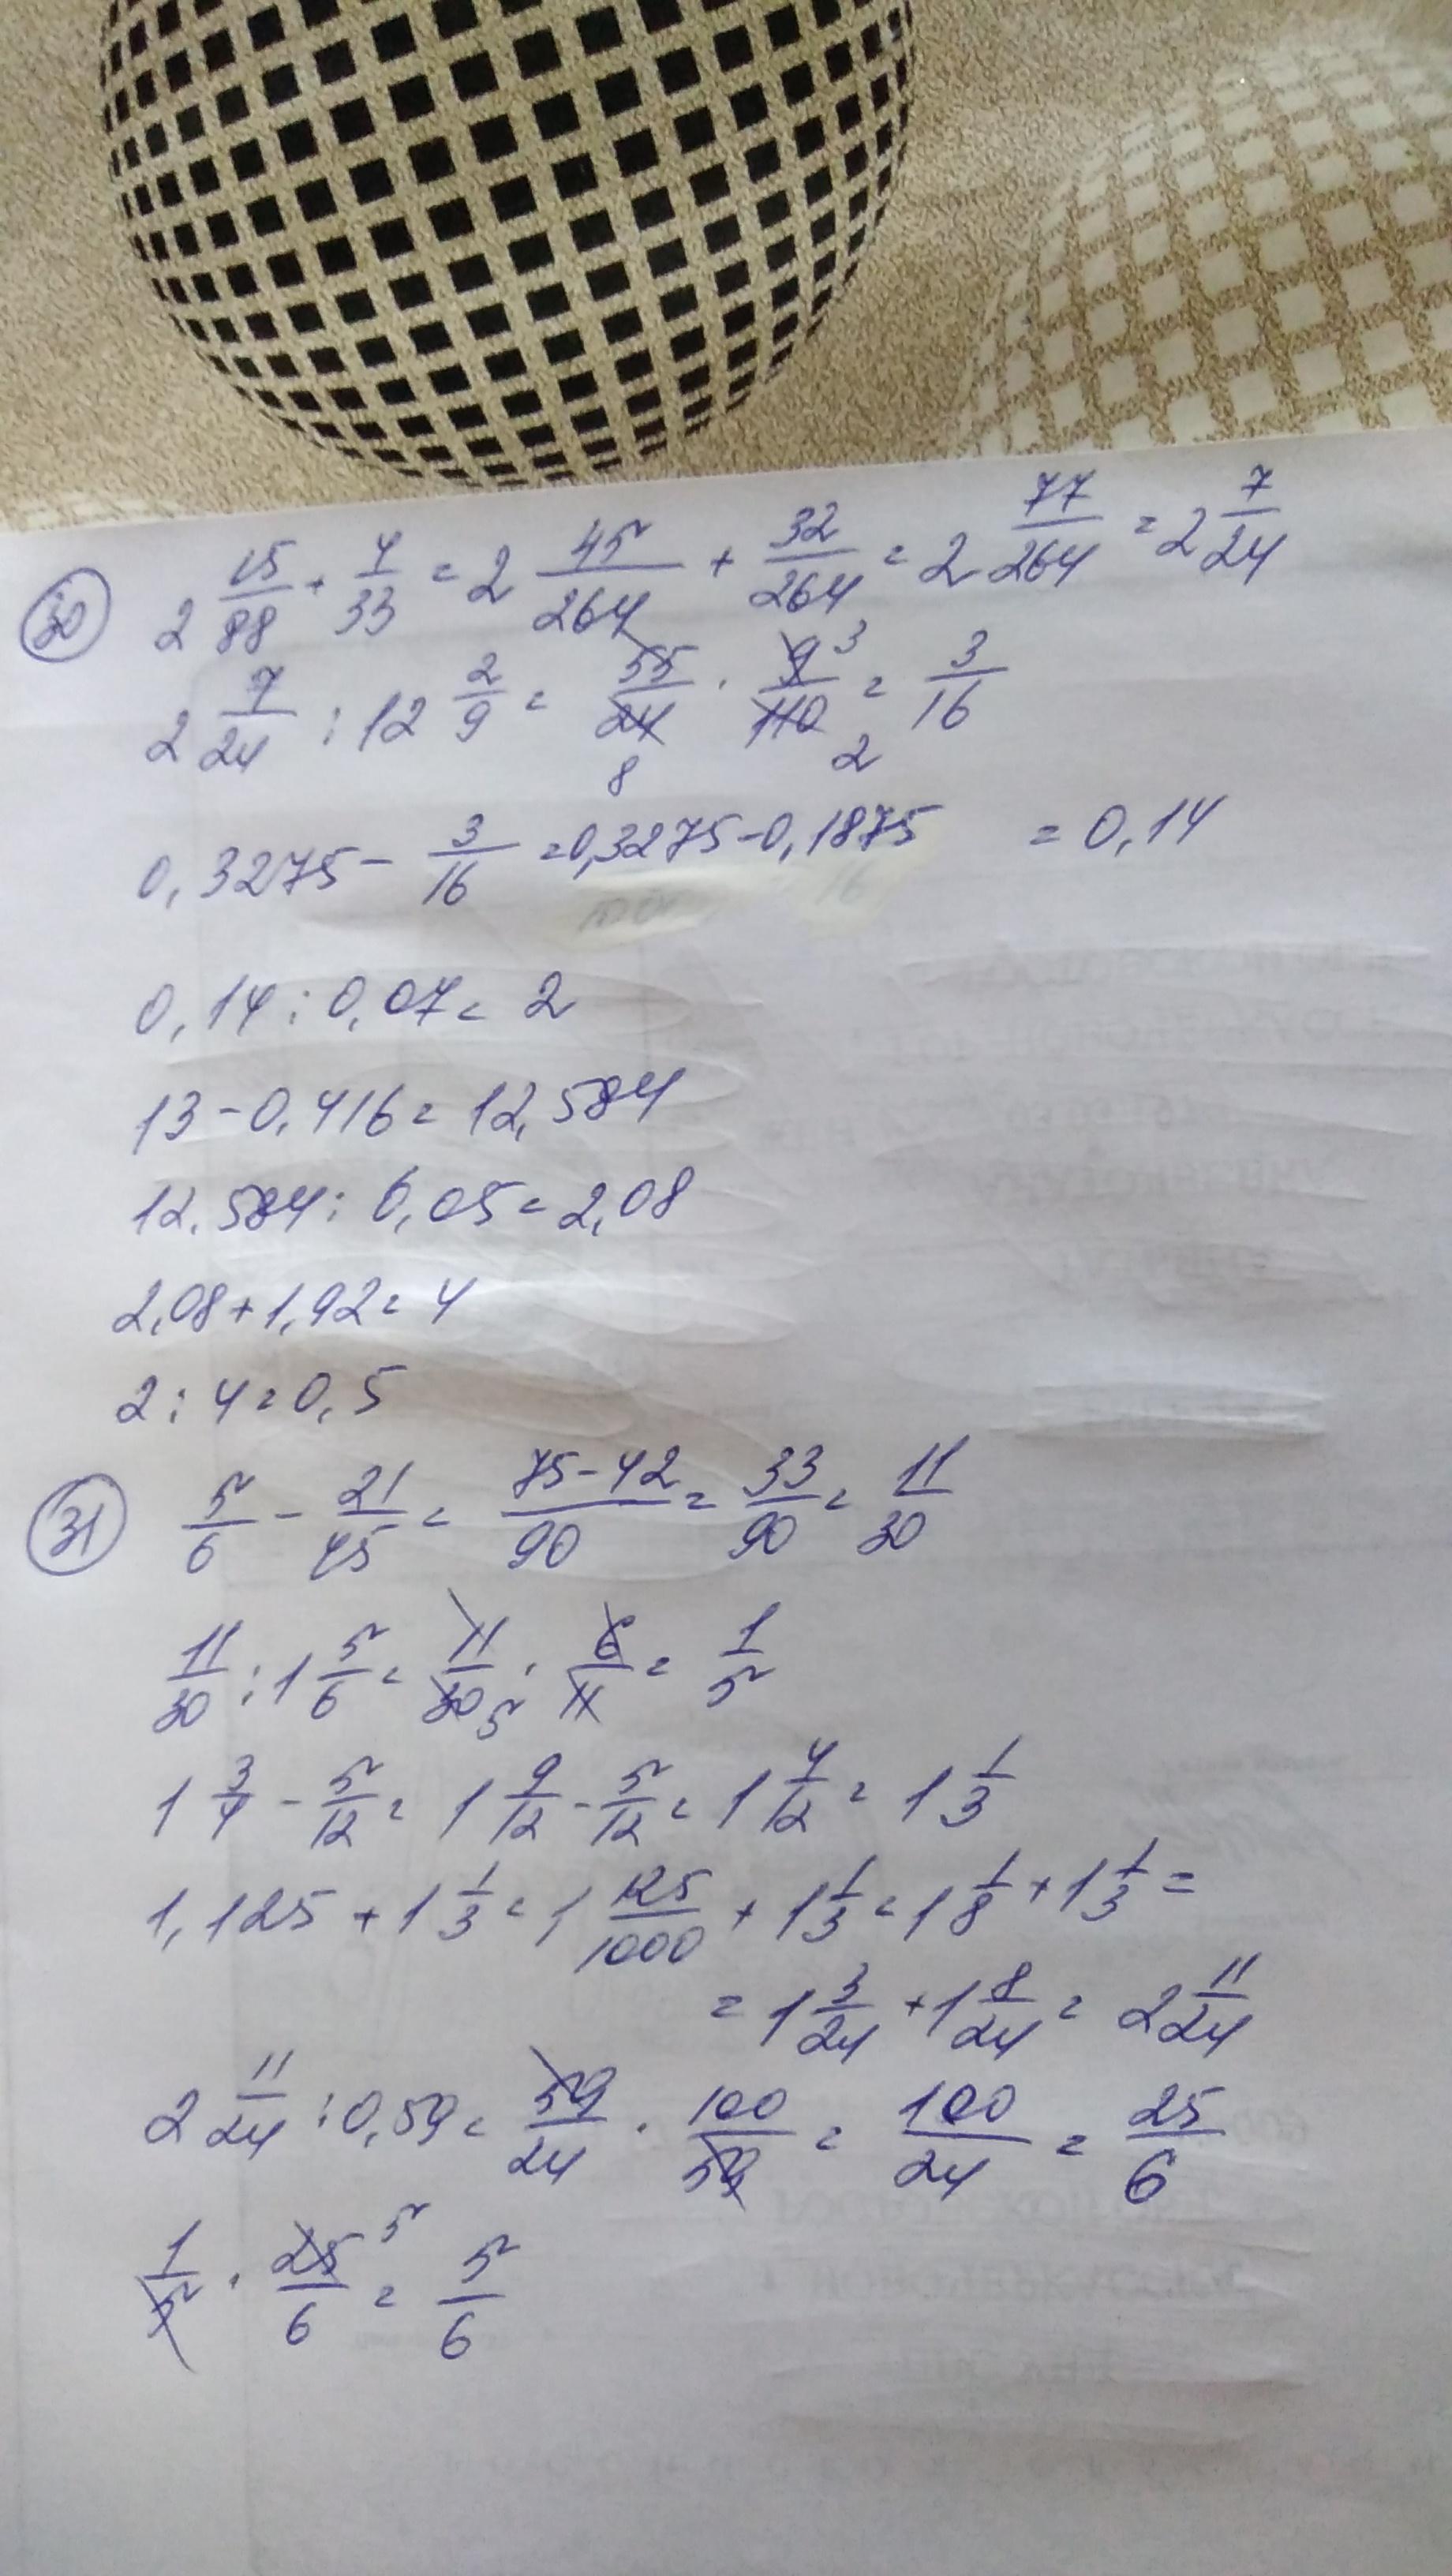 30 2 15/88 + 4/33 = 2 45/264 + 32/264 = 2 77/264 = 2 7/24
2 7/24 : 12 2/9 = 55/24 8 · 9 3/110 2 = 3/16
0,3275 - 3/16 = 0,3275 - 0,1875 = 0,14
0,14 : 0,07 = 2
13 - 0,416 = 12,584
12,584 : 6,05 = 2,08
2,08 + 1,92 = 4
2 : 4 = 0,5
31 5/6 - 21/45 = 75-42/90 = 33/90 = 11/30
11/30 : 1 5/6 = 11/30 5 · 6/11 = 1/5
1 3/4 - 5/12 = 1 9/12 - 5/12 = 1 4/12 = 1 1/3
1,125 + 1 1/3 = 1 125/1000 + 1 1/3 = 1 1/8 + 1 1/3 =
= 1 3/24 + 1 8/24 = 2 11/24
2 11/24 : 0,59 = 59/24 · 100/59 = 100/24 = 25/6
1/5 · 25 5/6 = 5/6